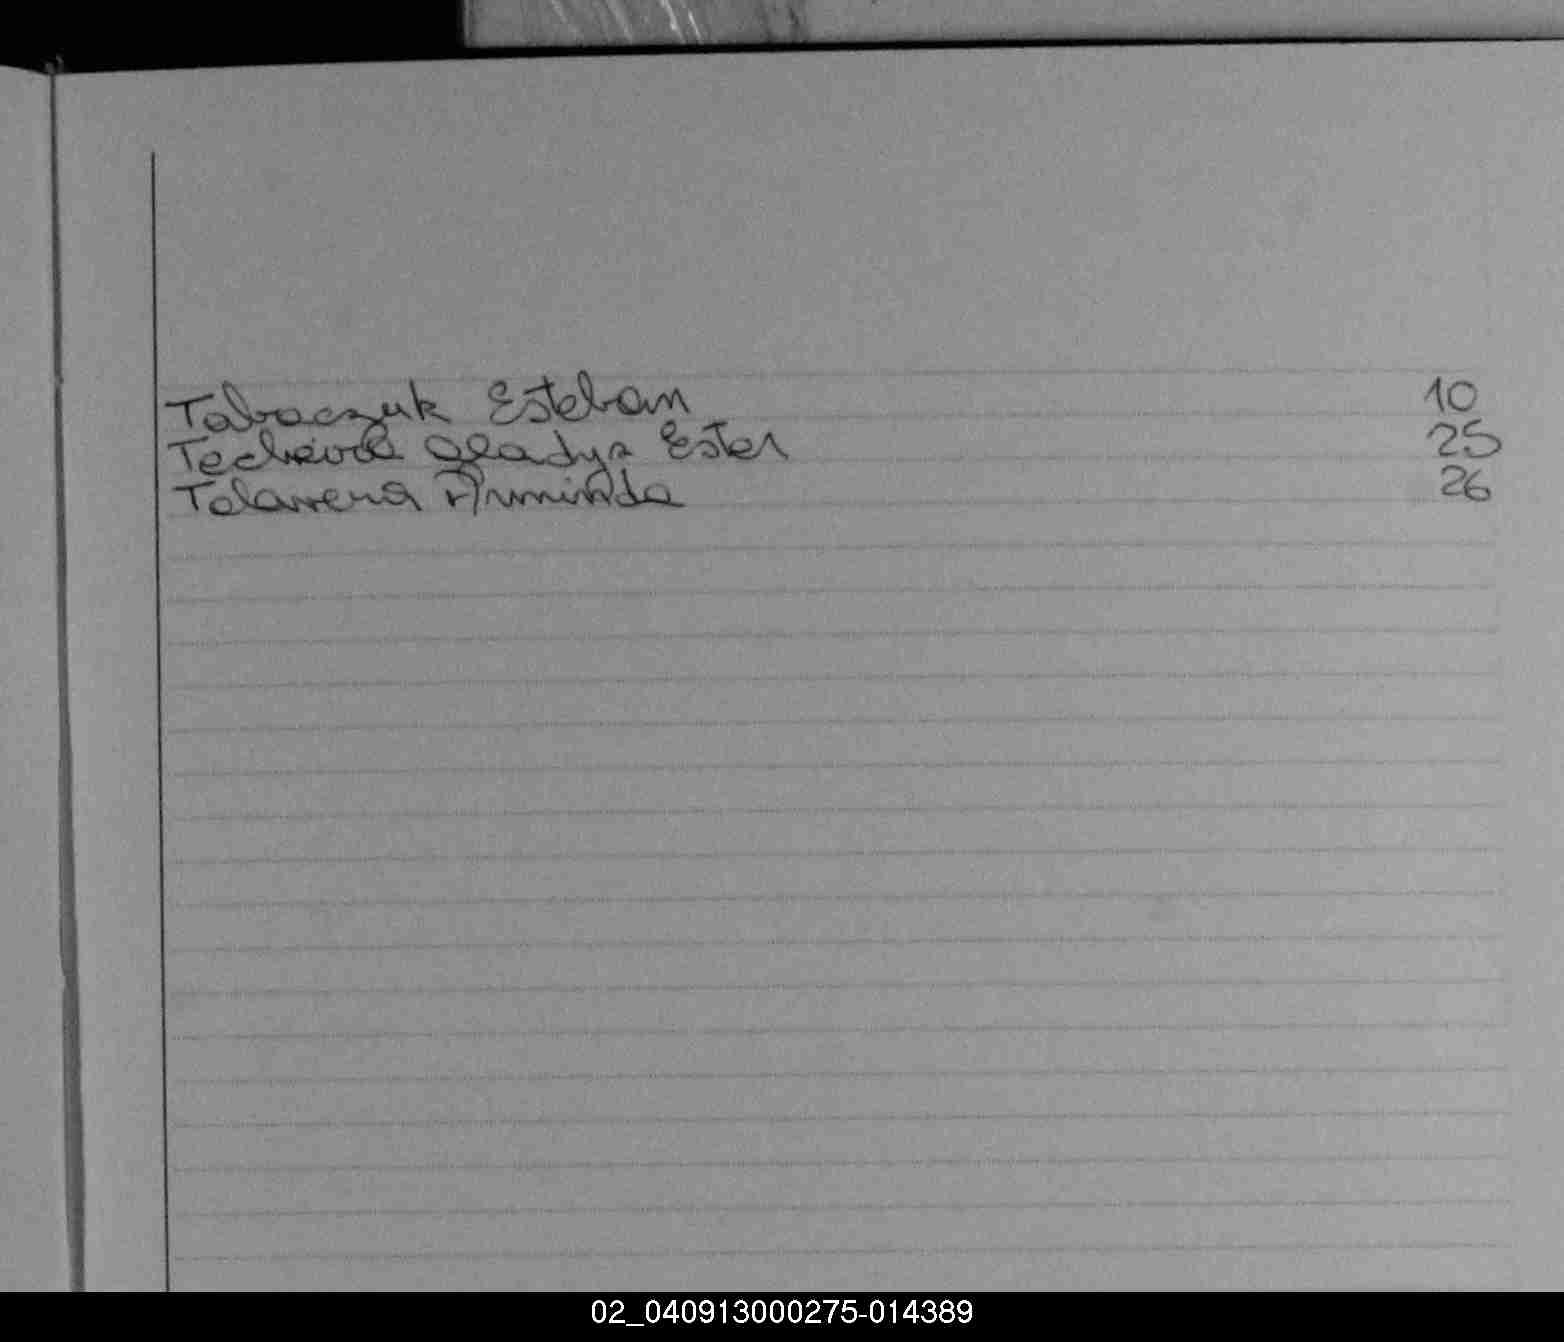 Tabaczuk Esteban 10
Techeira Gladys Ester 25
Talavera Arminda 26
02_040913000275-014389